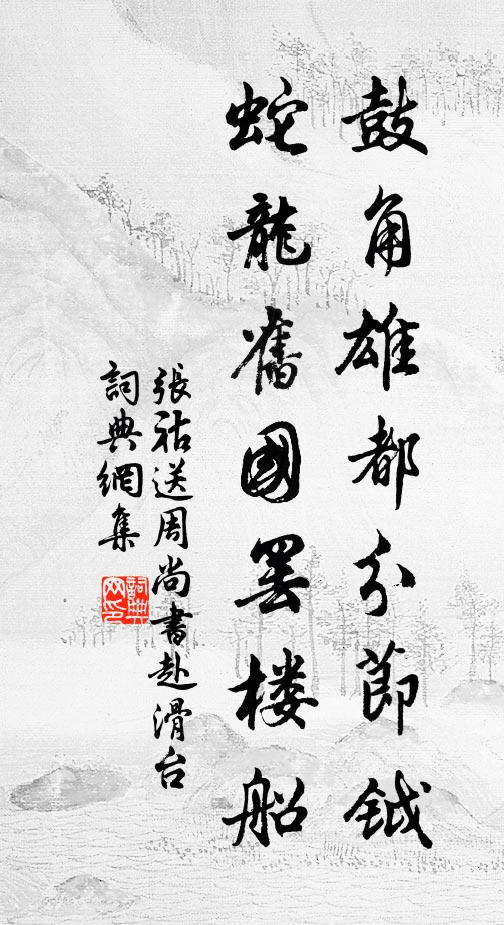 鼓角雄都分節鉞
蛇龍舊國罷楼船
張祜送周尚書赴滑台
詞典網集
詞典
网印